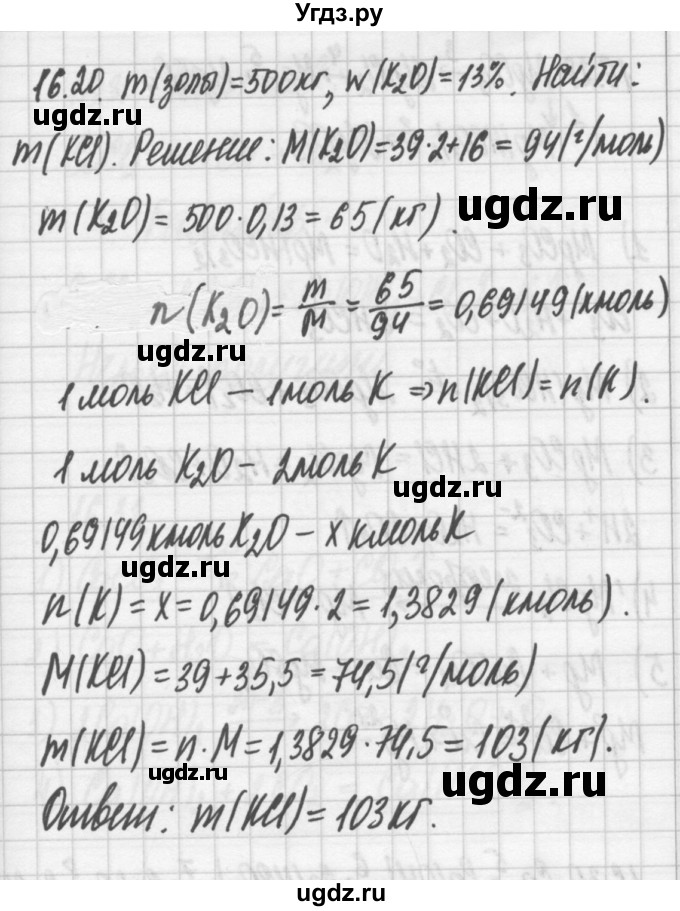 Угдз.ру
16.20. m(золы)=500кг, w(K₂O)=13%. Найти:
ugdz.ru
m(KCl). Решение: M(K₂O)=39·2+16=94(г/моль)
m(K₂O)=500·0,13=65(кг).
ugdz.ru
n(K₂O)=m/M=65/94=0,69149(кмоль)
ugdz.ru
1 моль KCl – 1 моль K ⇒ n(KCl)=n(K).
1 моль K₂O – 2 моль K
ugdz.ru
0,69149 кмоль K₂O – x кмоль K
ugdz.ru
n(K)=x=0,69149·2=1,3829(кмоль).
M(KCl)=39+35,5=74,5(г/моль)
m(KCl)=n·M=1,3829·74,5=103(кг).
ugdz.ru
ugdz.ru
Ответ: m(KCl)=103кг.
ugdz.ru